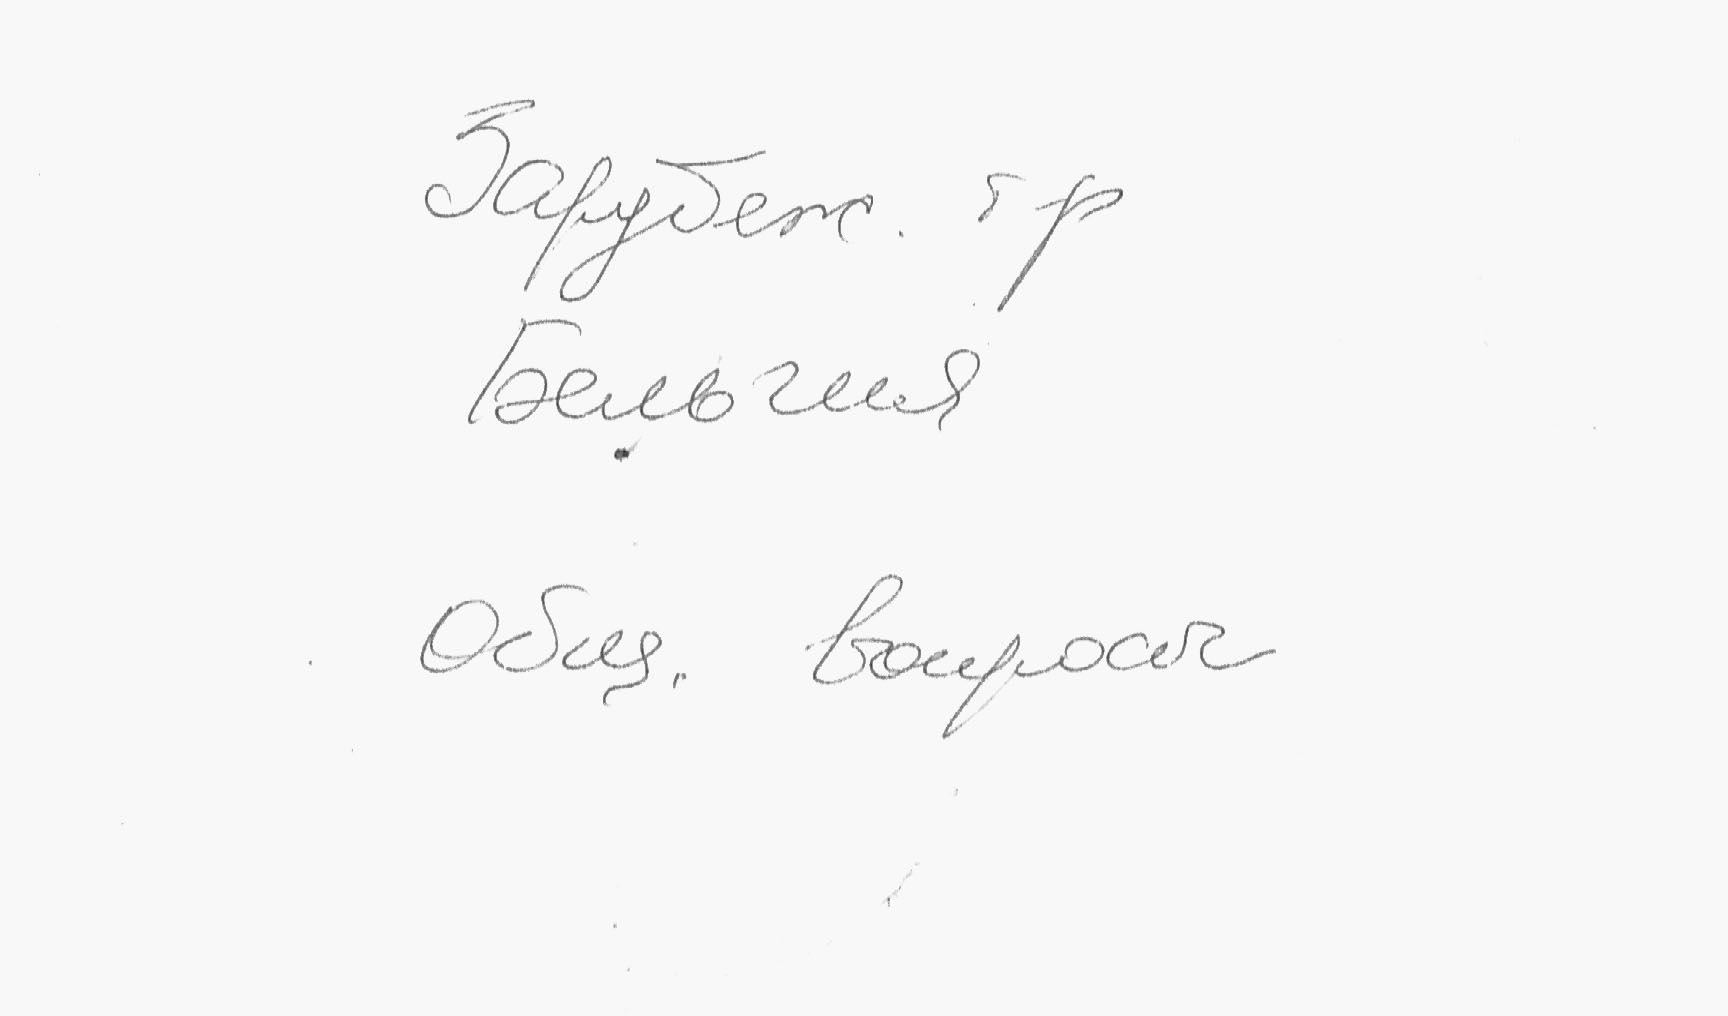 Зарубеж. гр
Бельгия
Общ. вопросы